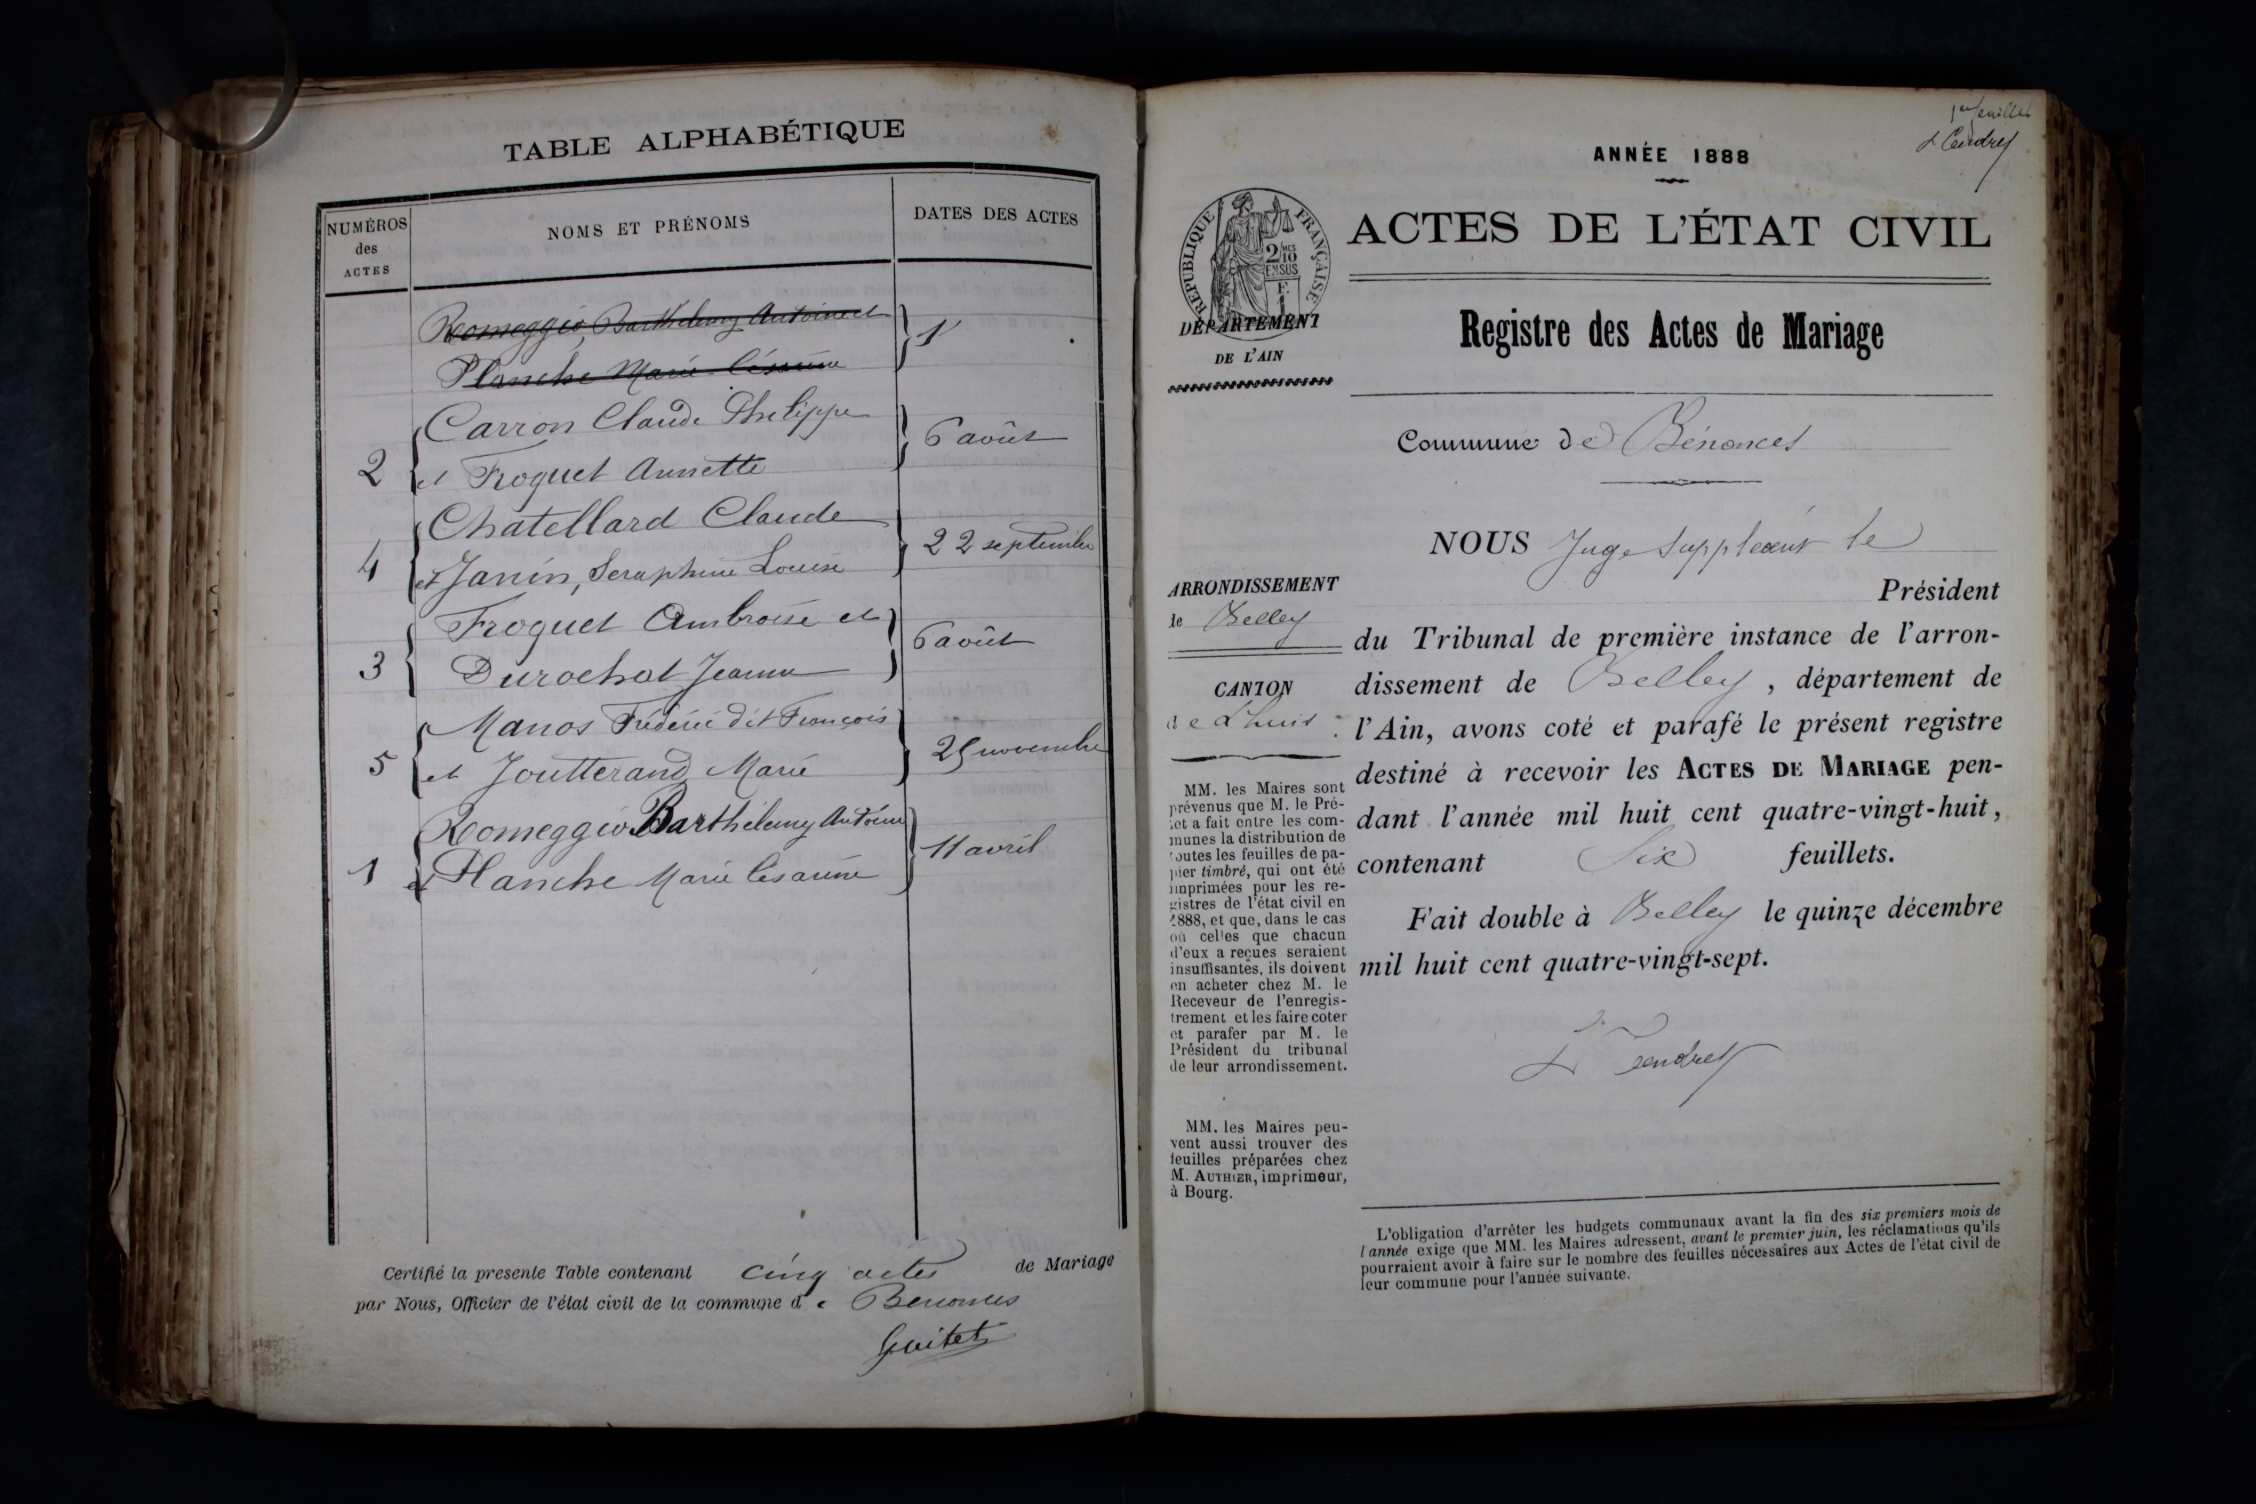 TABLE ALPHABÉTIQUE
NUMÉROS
des
ACTES
NOMS ET PRÉNOMS
DATES DES ACTES
Romeggio, Barthélemy Antoine et
Planche Marie Césarine
1
Carron Claude Philippe
2 et Froquet Annette
6 août
Chatellard Claude
4 et Janin, Seraphine Louise
22 septembre
Froquet Ambroise et
3 Durochat Jeanne
6 août
Manos Frédéric dit François
5 et Joutterand Marie
25 novembre
Romeggio Barthélemy Antoine
1 et Planche Marie Césarine
11 avril
Certifié la presente Table contenant cinq actes de Mariage
par Nous, Officier de l'état civil de la commune de Benonces
Guitet
1er feuillet
L Tendret
ANNÉE 1888
RÉPUBLIQUE FRANÇAISE
2 MES
10
EN SUS
F.
1
DÉPARTEMENT
DE L'AIN
ACTES DE L'ÉTAT CIVIL
Registre des Actes de Mariage
Commune de Bénonces
ARRONDISSEMENT
de Belley
CANTON
de Lhuis
MM. les Maires sont
prévenus que M. le Pré-
fet a fait entre les com-
munes la distribution de
toutes les feuilles de pa-
pier timbré, qui ont été
imprimées pour les re-
gistres de l'état civil en
1888, et que, dans le cas
où celles que chacun
d'eux a reçues seraient
insuffisantes, ils doivent
en acheter chez M. le
Receveur de l'enregis-
trement et les faire coter
et parafer par M. le
Président du tribunal
de leur arrondissement.
MM. les Maires peu-
vent aussi trouver des
feuilles préparées chez
M. AUTHIER, imprimeur,
à Bourg.
NOUS Juge suppléant le
Président
du Tribunal de première instance de l'arron-
dissement de Belley, département de
l'Ain, avons coté et parafé le présent registre
destiné à recevoir les ACTES DE MARIAGE pen-
dant l'année mil huit cent quatre-vingt-huit,
contenant Six feuillets.
Fait double à Belley le quinze décembre
mil huit cent quatre-vingt-sept.
L Tendret
L'obligation d'arrêter les budgets communaux avant la fin des six premiers mois de
l'année exige que MM. les Maires adressent, avant le premier juin, les réclamations qu'ils
pourraient avoir à faire sur le nombre des feuilles nécessaires aux Actes de l'état civil de
leur commune pour l'année suivante.